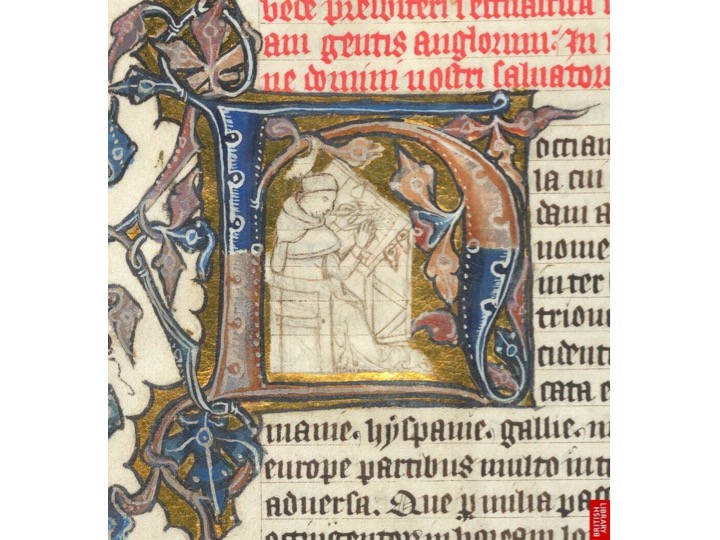 vede presbiteri i ecclastica
am gentis anglorum: In
ne domini nostri salvator
occian
la cui
dam a
nome
inter
trion
cident
cata e
manie. hyspanie. gallie.
europe partibus multo int
adversa. Que p milia pas
BRITISH LIBRARY